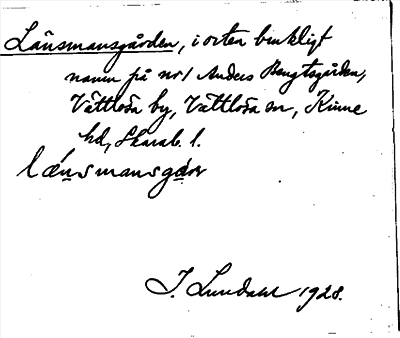 Länsmansgården, i orten brukligt
namn på nr 1 Anders Bengtsgården,
Vättlösa by, Vättlösa sn, Kinne
hd, Skarab. l.
lǽnsmansgáɷr
I. Lundahl 1928.